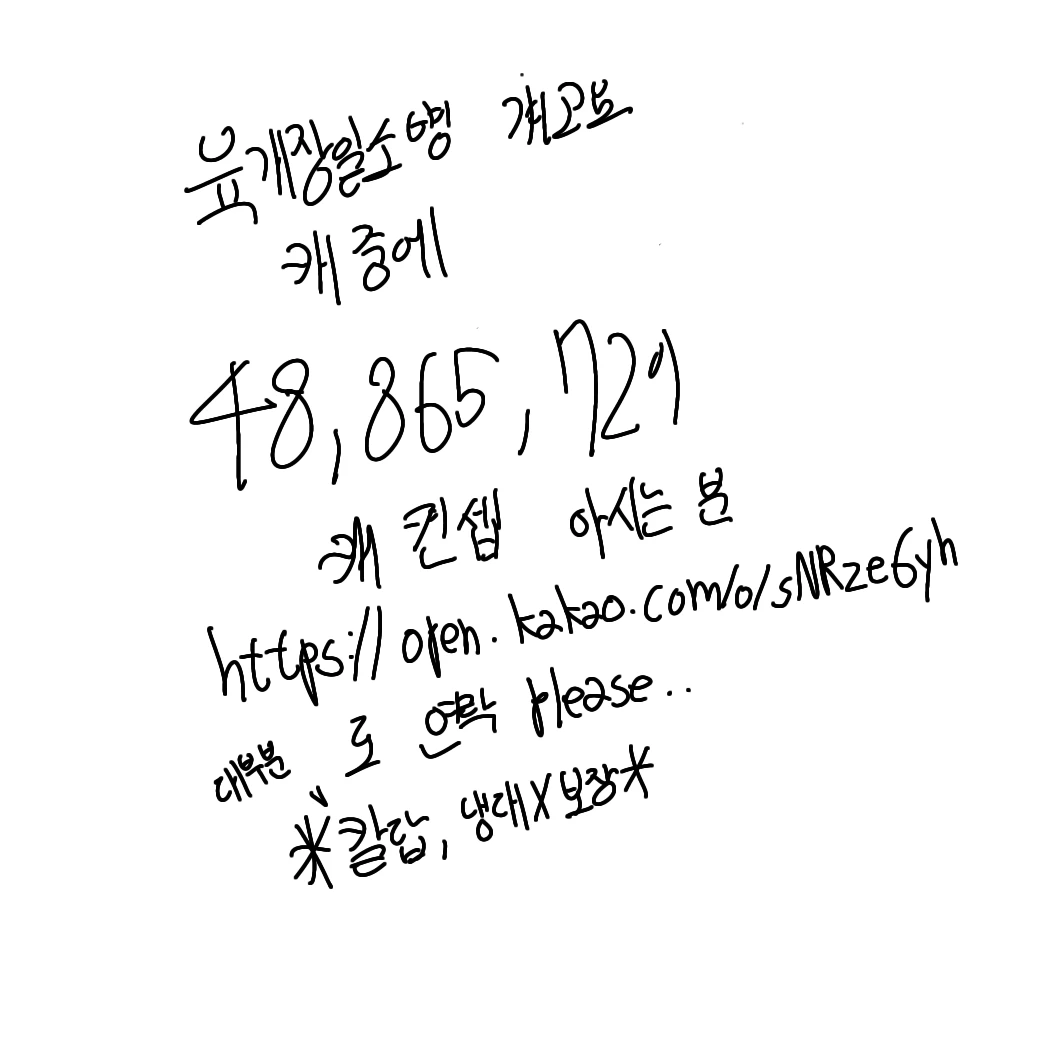 육개장일소앵 걔고요
캐 중에
48,865,721
캐 컨셉 아시는 분
https://open.kakao.com/o/sNRze6yh
로 연락 please..
대부분
*칼답, 냉대X보장*